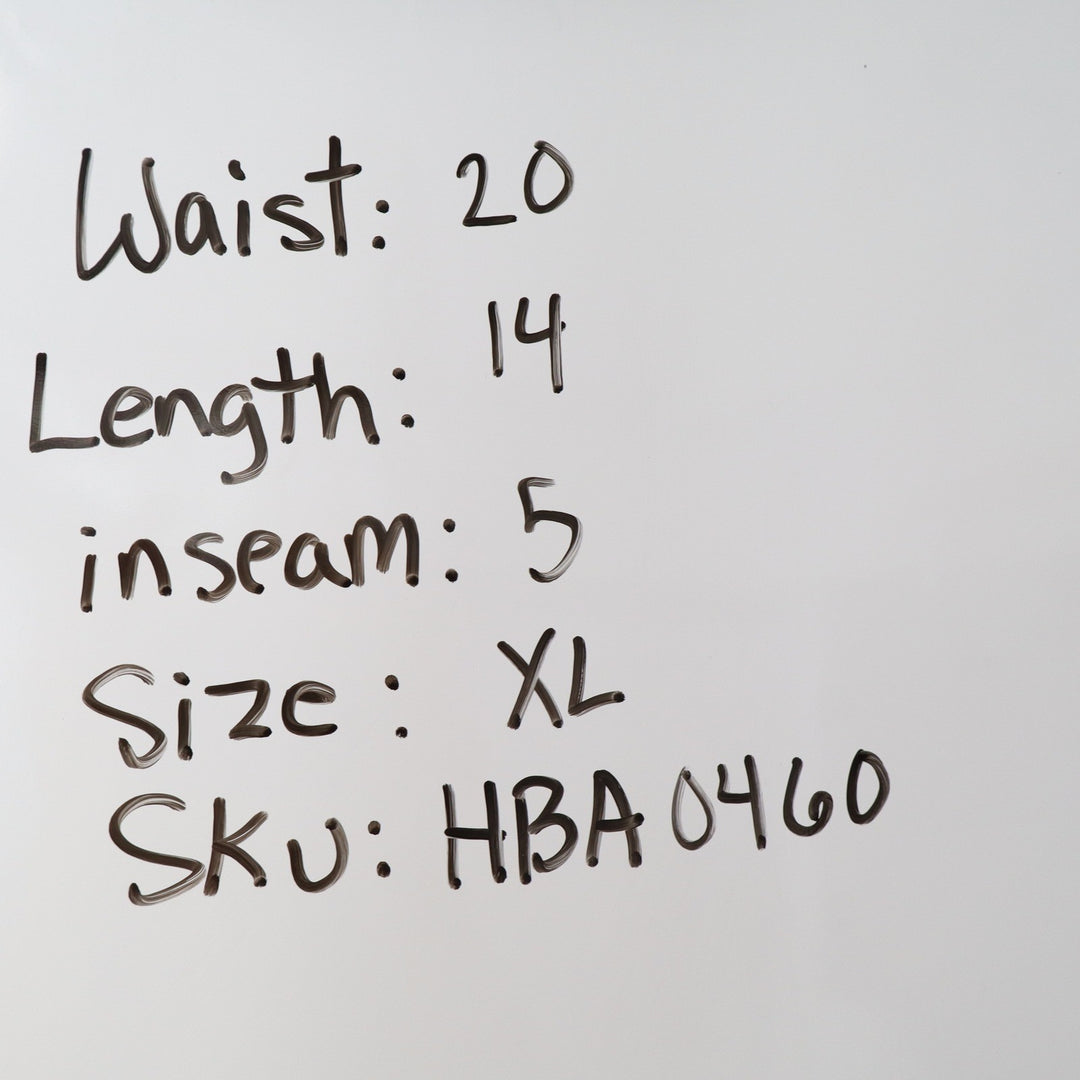 Waist: 20
Length: 14
inseam: 5
Size: XL
SKU: HBA0460